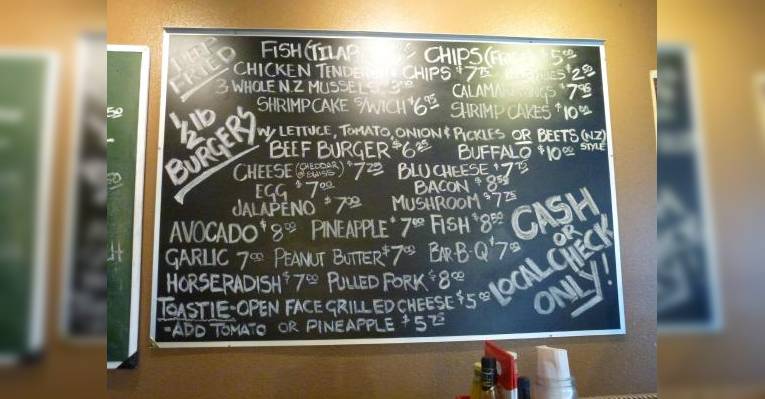 DEEP
FRIED
FISH (TILAP CHIPS $5.00
CHICKEN TENDER CHIPS $7.75 $2.50
3 WHOLE N.Z MUSSELS 3.00 CALAMARI RINGS $7.95
SHRIMPCAKE S/WICH $6.95 SHRIMP CAKES $10.00
1/2 lb
BURGER'S
W/ LETTUCE, TOMATO, ONION & PICKLES OR BEETS (N.Z) STYLE
BEEF BURGER $6.25 BUFFALO $10.00
CHEESE (CHEDDAR OR SWISS) $7.25 BLU CHEESE $7.75
EGG $7.00 BACON $8.50
JALAPENO $7.00 MUSHROOM $7.75
AVOCADO $8.00 PINEAPPLE $7.00 FISH $8.50
GARLIC 7.00 PEANUT BUTTER $7.00 BAR-B-Q $7.00
HORSERADISH $7.00 PULLED PORK $8.00
TOASTIE-OPEN FACE GRILLED CHEESE $5.00
-ADD TOMATO OR PINEAPPLE $5.75
CASH
OR
LOCAL CHECK
ONLY!